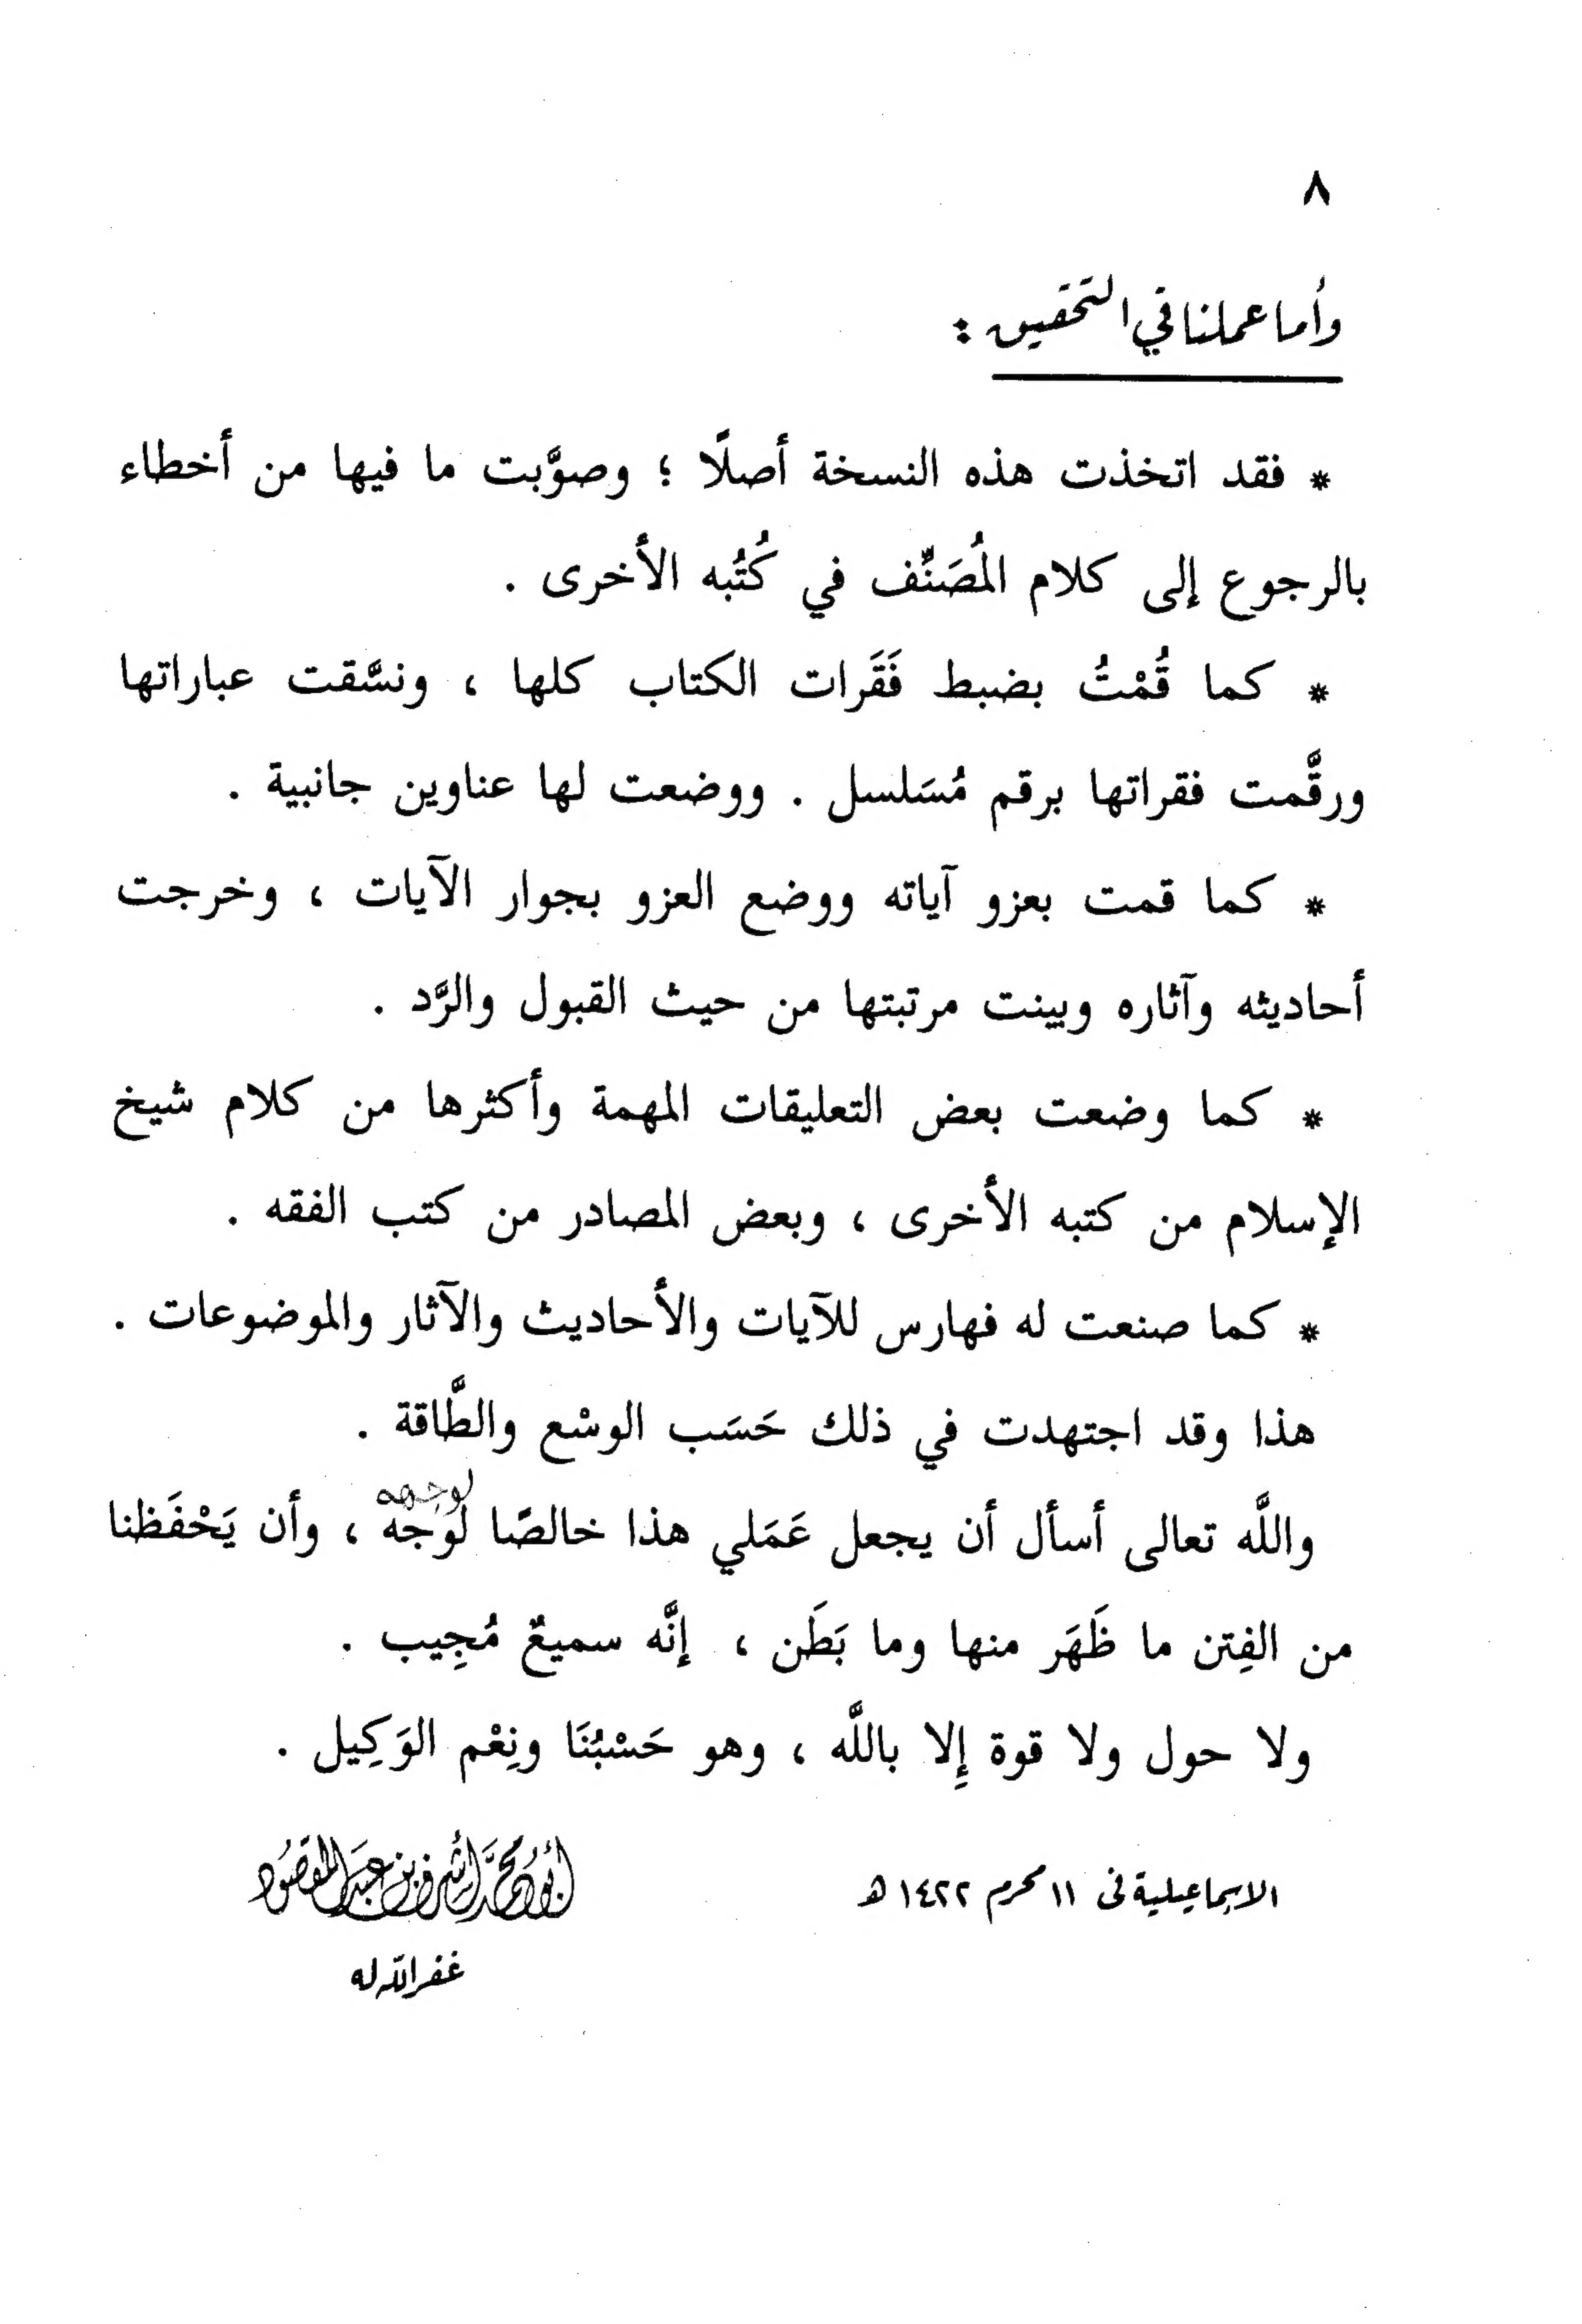 ٨
وأما عملنا في التحقيق :
* فقد اتخذت هذه النسخة أصلًا ؛ وصوَّبت ما فيها من أخطاء
بالرجوع إلى كلام المُصَنِّف في كُتُبه الأخرى .
* كما قُمْتُ بضبط فَقَرات الكتاب كلها ، ونسَّقت عباراتها
ورقَّمت فقراتها برقم مُسَلسل . ووضعت لها عناوين جانبية .
* كما قمت بعزو آياته ووضع العزو بجوار الآيات ، وخرجت
أحاديثه وآثاره وبينت مرتبتها من حيث القبول والرَّد .
* كما وضعت بعض التعليقات المهمة وأكثرها من كلام شيخ
الإسلام من كتبه الأخرى ، وبعض المصادر من كتب الفقه .
* كما صنعت له فهارس للآيات والأحاديث والآثار والموضوعات .
هذا وقد اجتهدت في ذلك حَسَب الوسْع والطَّاقة .
لوجهه
واللَّه تعالى أسأل أن يجعل عَمَلي هذا خالصًا لوجه ، وأن يَحْفَظنا
من الفِتن ما ظَهَر منها وما بَطَن ، إنَّه سميعٌ مُجِيب .
ولا حول ولا قوة إِلا باللَّه ، وهو حَسْبُنَا ونِعْم الوَكِيل .
الإسماعيلية فى ١١ محرم ١٤٢٢ هـ
أبُو محمَّد أشرف بن عَبد المقصُود
غفر الله له